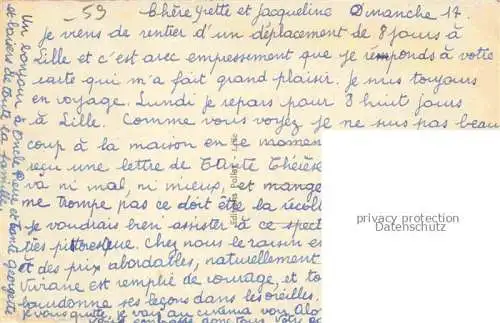 -59
Chère Yvette et Jacqueline Dimanche 17.
Je viens de rentrer d'un déplacement de 8 jours à
Lille et c'est avec empressement que je réponds à votre
carte qui m'a fait grand plaisir. Je suis toujours
en voyage. Lundi je repars pour 3 huit jours
à Lille. Comme vous voyez je ne suis pas beau
coup à la maison en ce momen
reçu une lettre de Tante Thérèse
va ni mal, ni mieux, et mange
me trompe pas ce doit être la récol
je voudrais bien assister à ce spect
très pittoresque. Chez nous le raisin es
à des prix abordables, naturellement
Viviane est remplie de courage, et to
bourdonne ses leçons dans les oreilles.
Je vous quitte, je vais au cinéma voir
Un bonjour à Oncle Pierre et tante Georgette
et baisers de toute la famille
privacy protection
Datenschutz